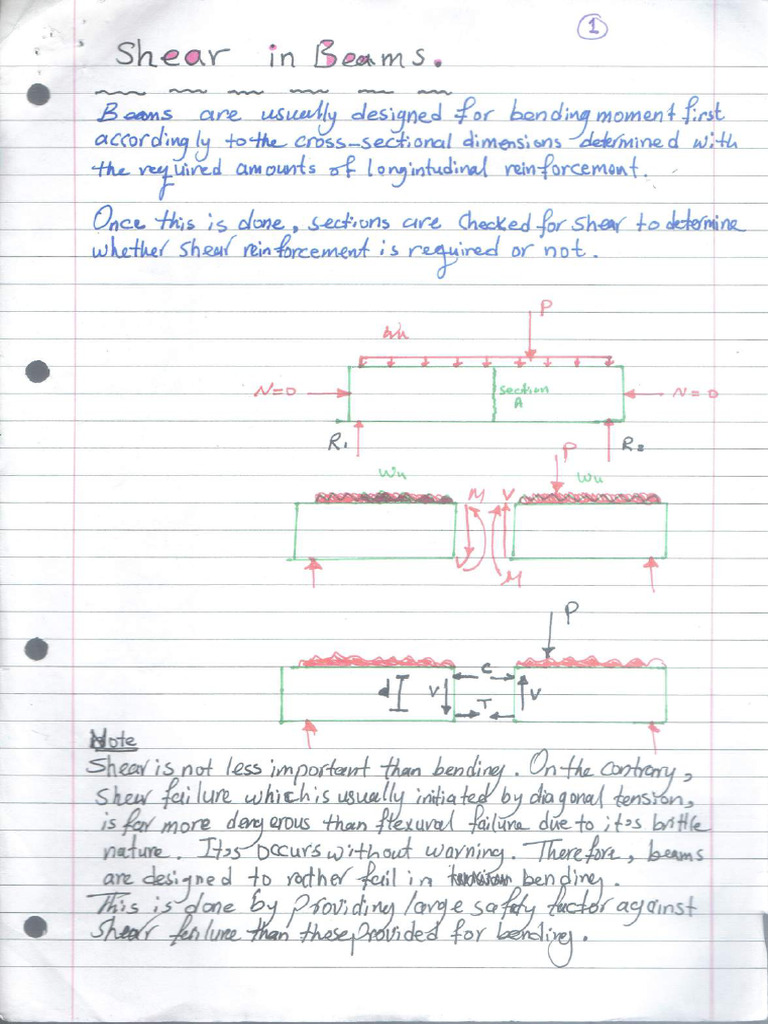 1
Shear in Beams.
Beams are usually designed for bending moment first
accordingly to the cross-sectional dimensions determined with
the required amounts of longintudinal reinforcement.
Once this is done, sections are checked for shear to determine
whether shear reinforcement is required or not.
P
Wu
N=0
section
A
N=0
R1
R2
P
Wu
M
V
Wu
V
M
P
C
d
V
V
T
Note
Shear is not less important than bending. On the contrary,
shear failure which is usually initiated by diagonal tension,
is far more dangerous than flexural failure due to it's brittle
nature. It's occurs without warning. Therefore, beams
are designed to rather fail in bending.
This is done by providing large safety factor against
shear failure than these provided for bending.